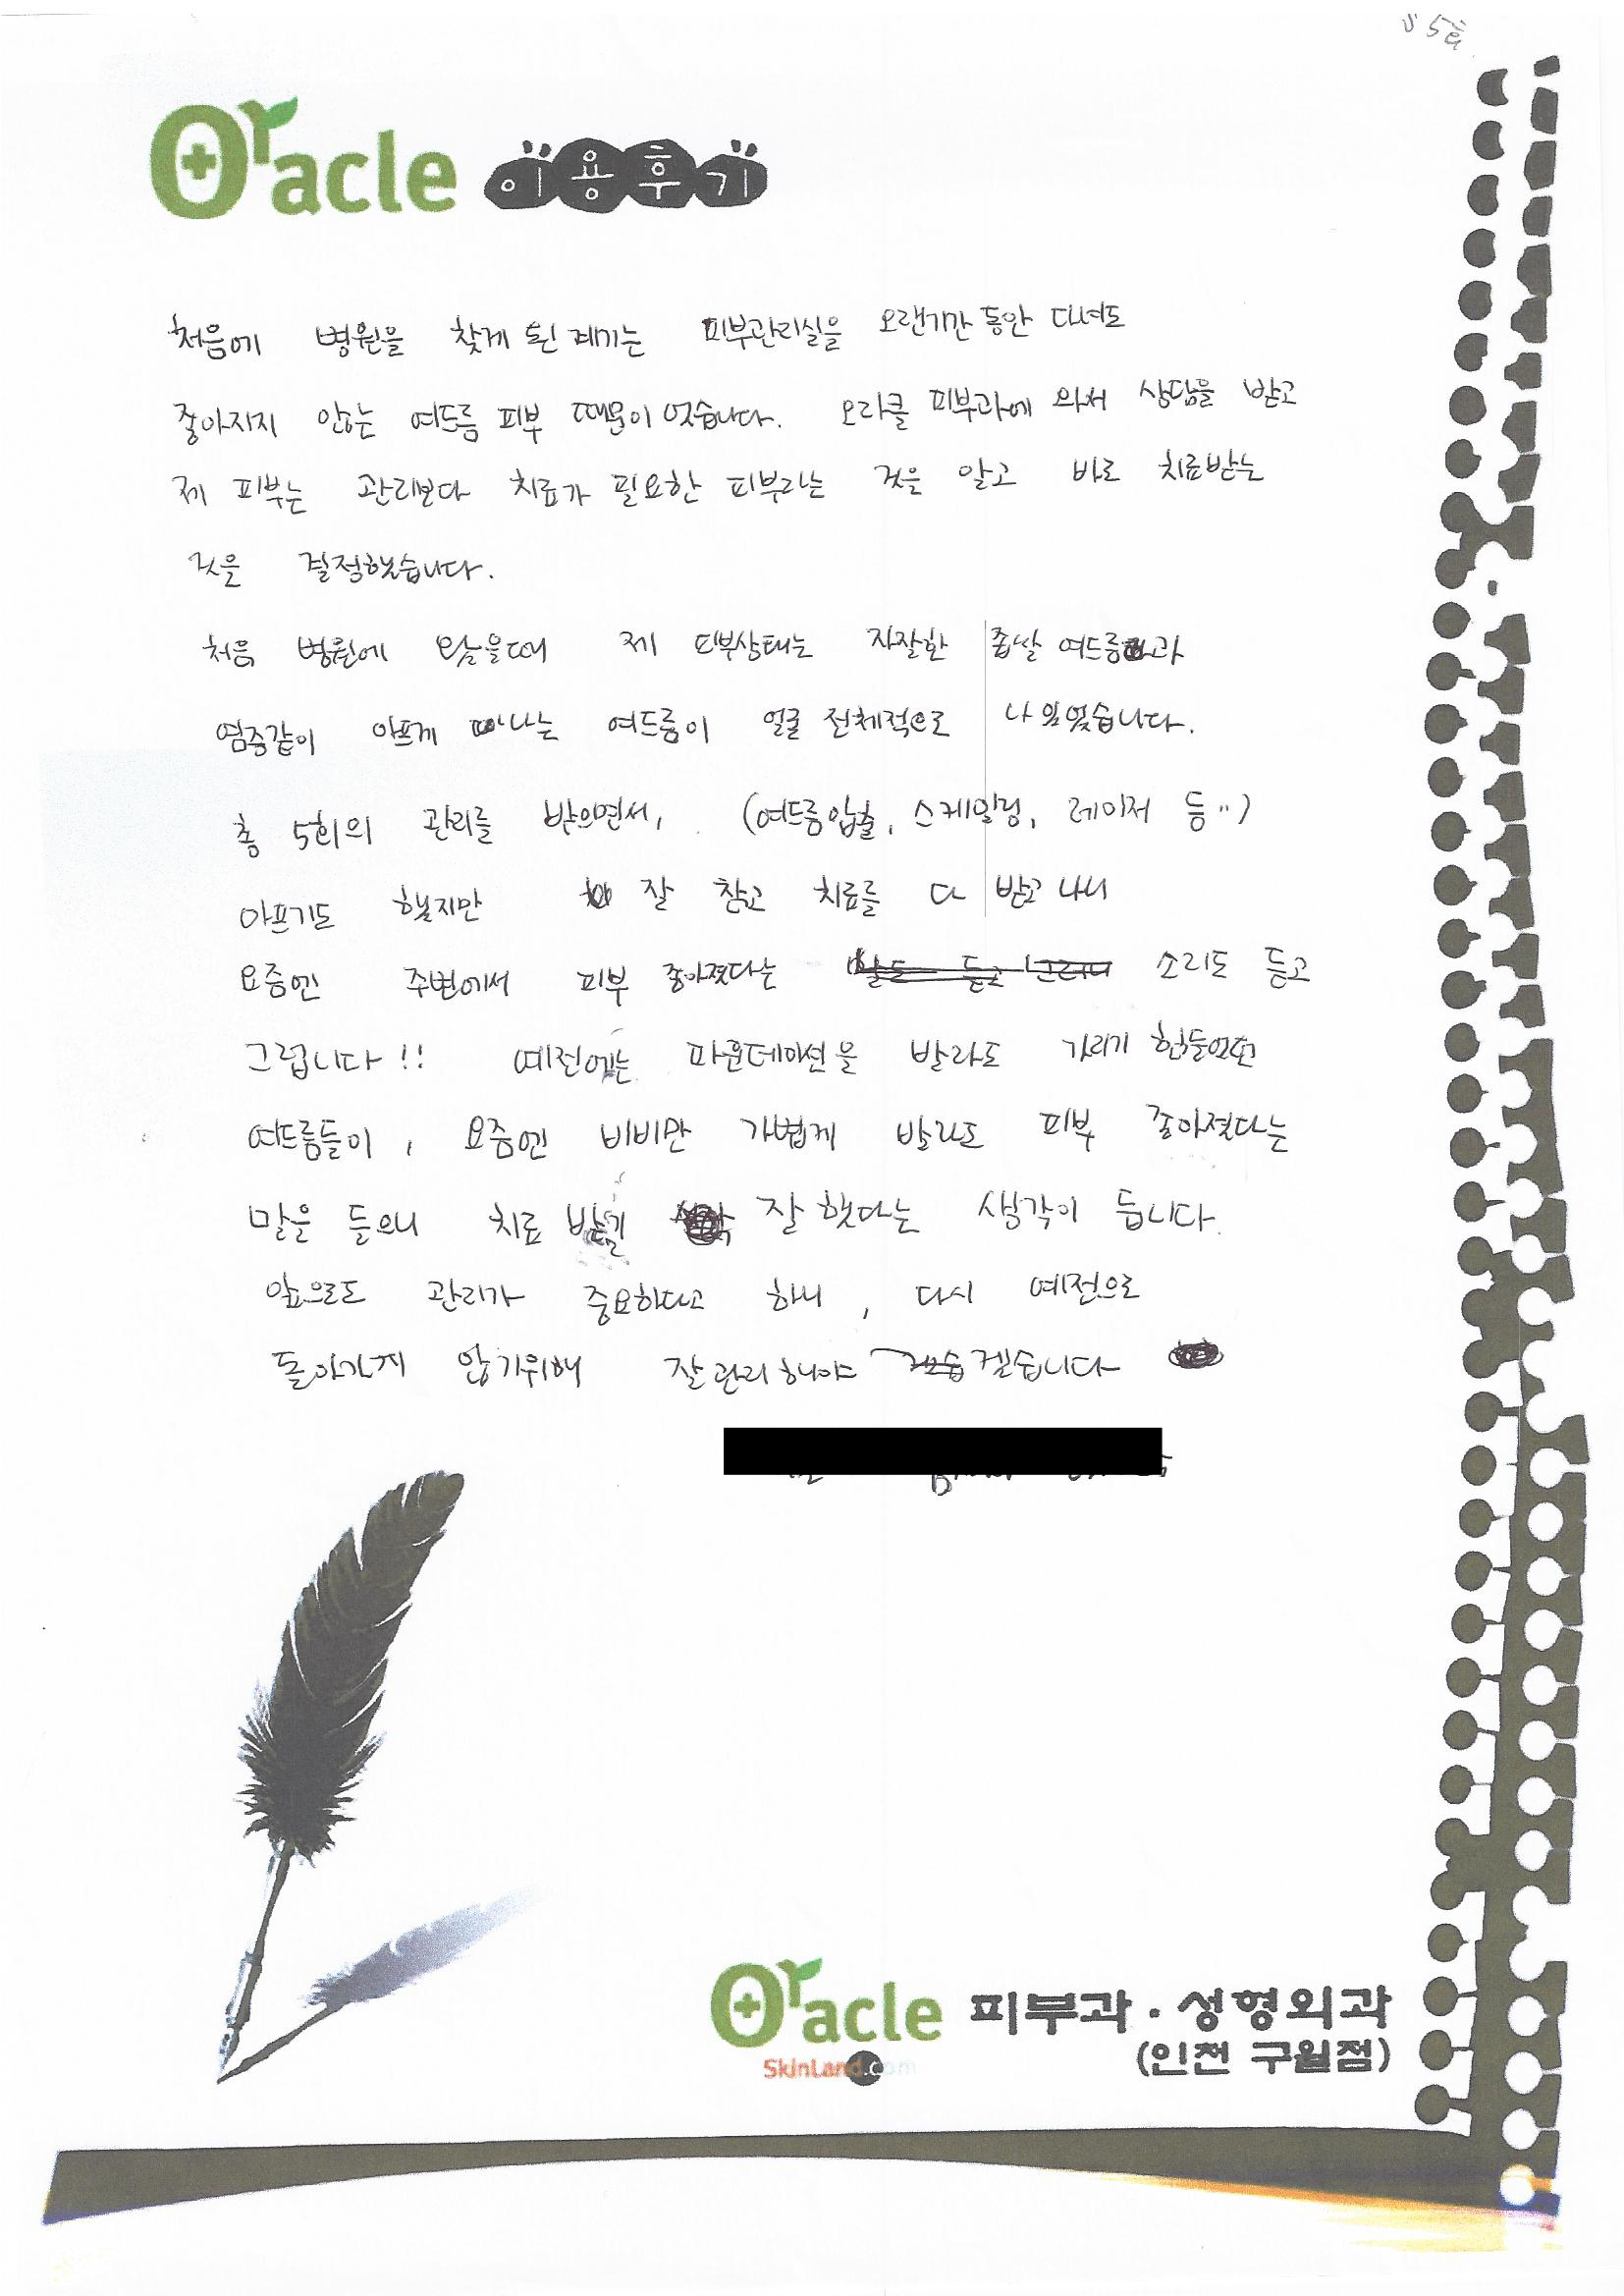 5회
Oracle 이용후기
처음에 병원을 찾게 된 계기는 피부관리실을 오랜기간 동안 다녀도
좋아지지 않는 여드름 피부 때문이었습니다. 오라클 피부과에 와서 상담을 받고
제 피부는 관리보다 치료가 필요한 피부라는 것을 알고 바로 치료받는
것을 결정했습니다.
처음 병원에 왔을때 제 피부상태는 자잘한 좁쌀 여드름과
염증같이 아프게 나는 여드름이 얼굴 전체적으로 나 있었습니다.
총 5회의 관리를 받으면서, (여드름압출, 스케일링, 레이저 등..)
아프기도 했지만 잘 참고 치료를 다 받고 나니
요즘엔 주변에서 피부 좋아졌다는 소리도 듣고
그럽니다!! 예전에는 파운데이션을 발라도 가리기 힘들었던
여드름들이, 요즘엔 비비만 가볍게 발라도 피부 좋아졌다는
말을 들으니 치료 받길 잘 했다는 생각이 듭니다.
앞으로도 관리가 중요하다고 하니, 다시 예전으로
돌아가지 않기위해 잘 관리해야 겠습니다
Oracle 피부과·성형외과
SkinLand.com
(인천 구월점)